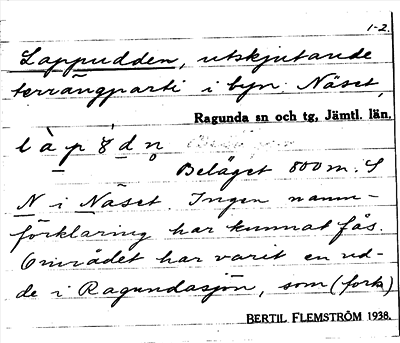 1-2.
Lappudden, utskjutande
terrängparti i byn Näset,
Ragunda sn och tg, Jämtl. län.
Beläget 800 m. S
N i Näset. Ingen namn-
förklaring har kunnat fås.
Området har varit en ud-
de i Ragundasjön, som (forts)
BERTIL FLEMSTRÖM 1938.